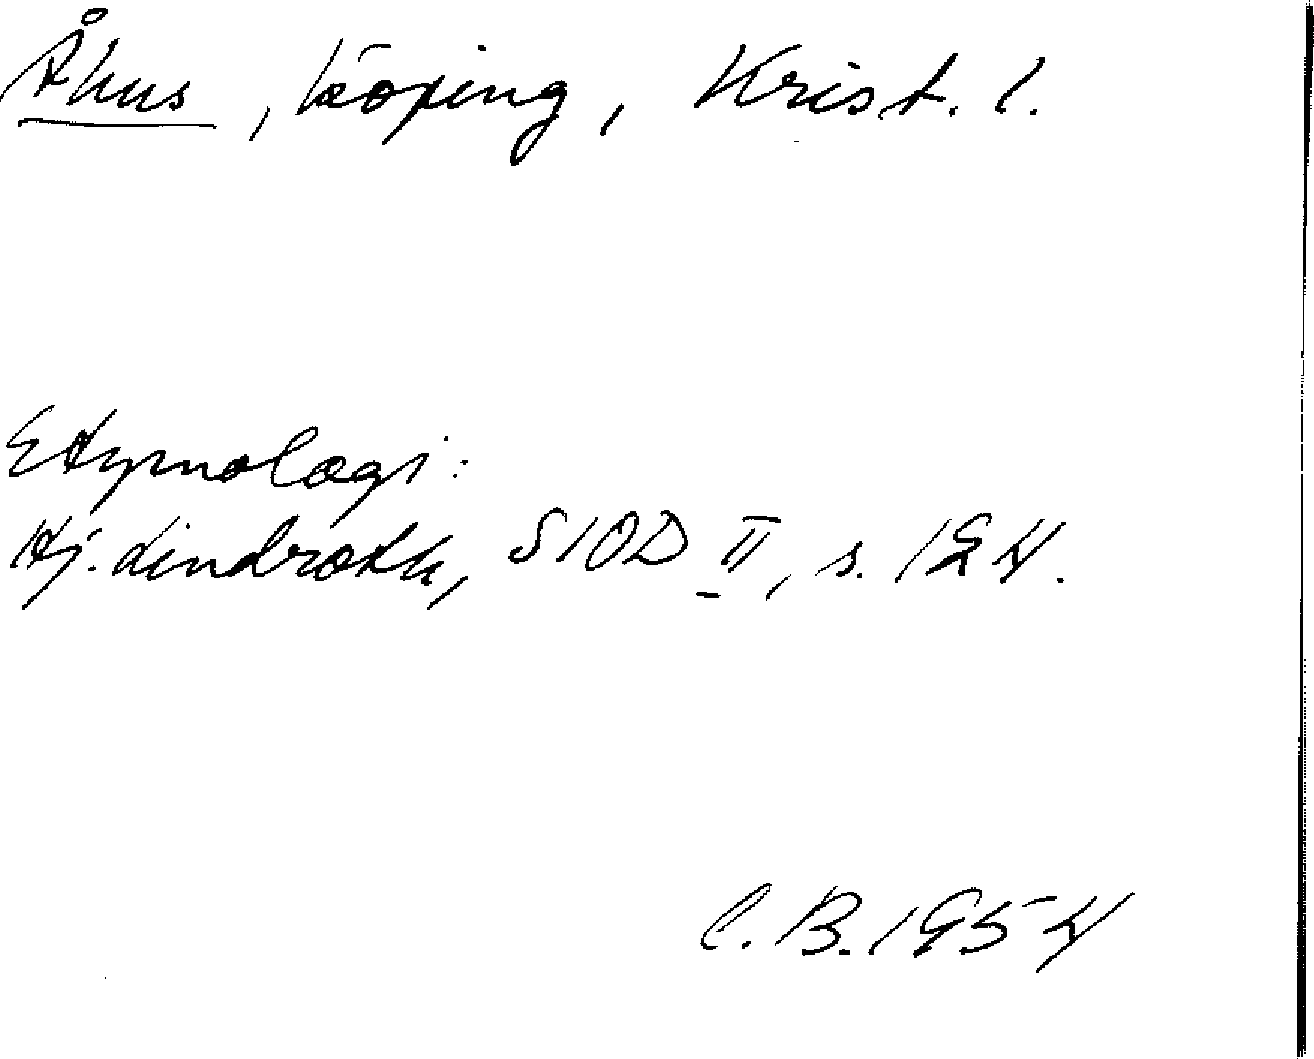 Åhus, köping, Krist. l.
Etymologi:
Hj. Lindroth, SIOD II, s. 124.
C. B. 1954